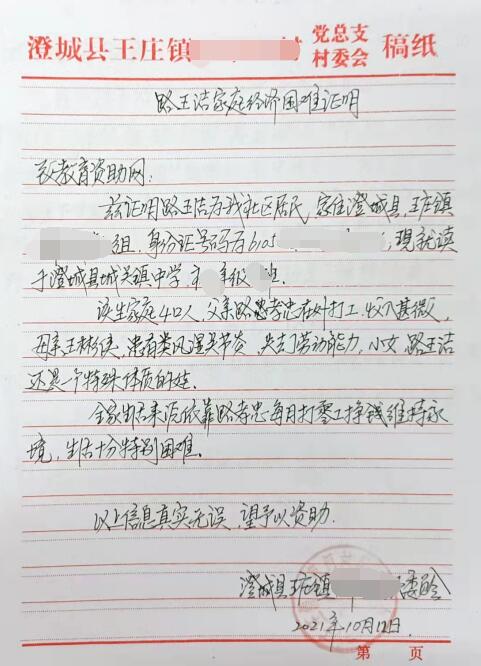 澄城县王庄镇 村 党总支 村委会 稿纸
路王洁家庭经济困难证明
致教育资助网:
兹证明路王洁为我社区居民,家住澄城县,王庄镇
组,身份证号码为6105 ,现就读
于澄城县城关镇中学 年级 班.
该生家庭4口人,父亲路孝忠在外打工,收入甚微,
母亲王彬侠,患有类风湿关节炎,失去劳动能力,小女路王洁
还是一个特殊体质的娃.
全家生活来源依靠路孝忠每月打零工挣钱维持家
境,生活十分特别困难.
以上信息真实无误,望予以资助.
澄城县王庄镇 委会
2021年10月12日.
第 页